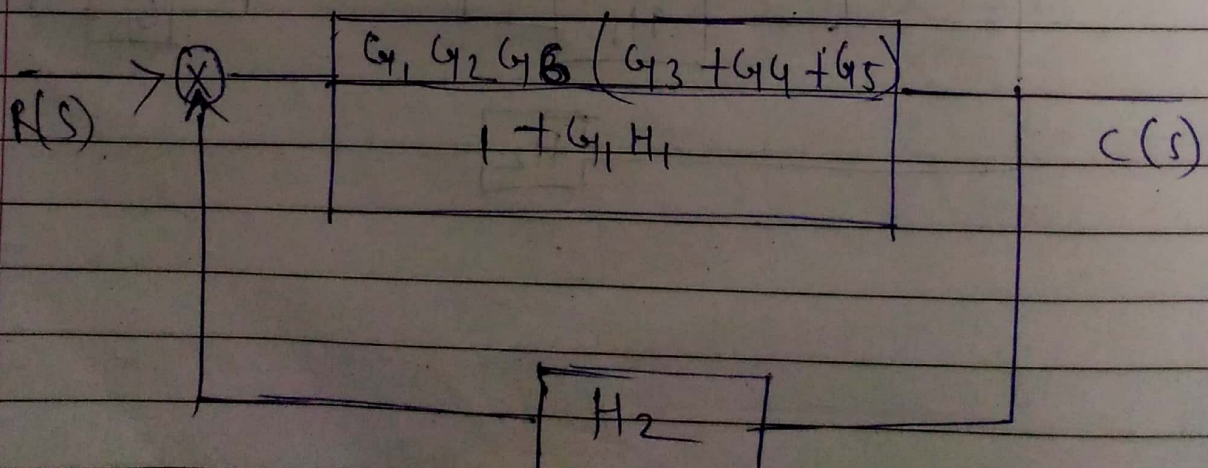 G1 G2 G6 (G3 + G4 + G5)
1 + G1 H1
R(S)
C(S)
H2